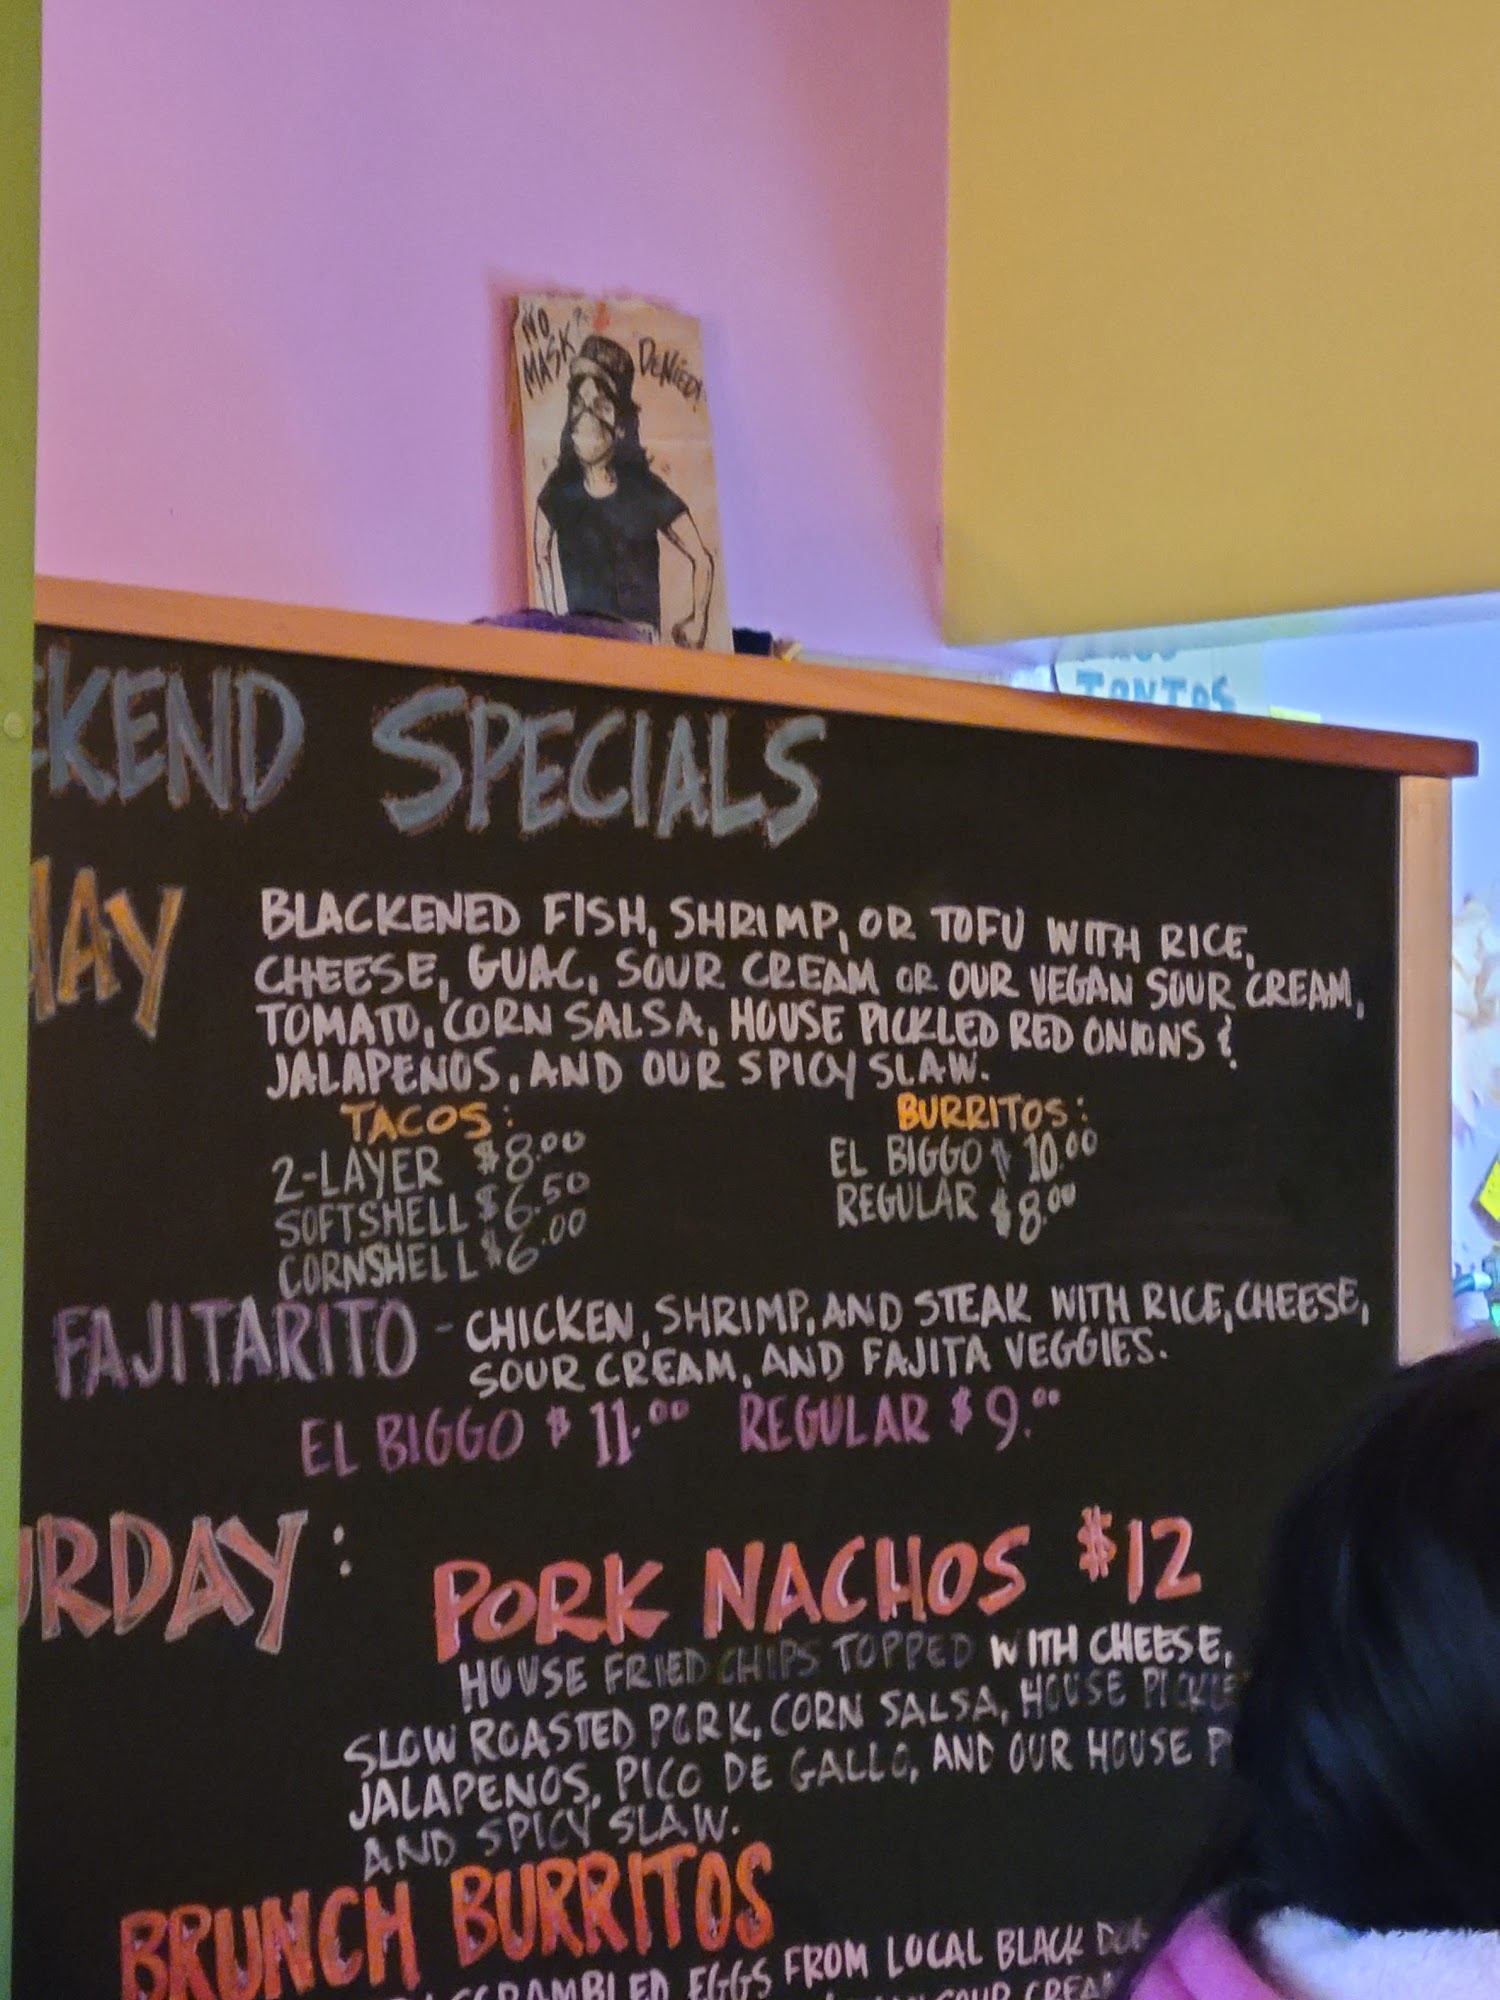 NO MASK? DENIED!
SPECIALS
BLACKENED FISH, SHRIMP, OR TOFU WITH RICE,
CHEESE, GUAC, SOUR CREAM OR OUR VEGAN SOUR CREAM,
TOMATO, CORN SALSA, HOUSE PICKLED RED ONIONS &
JALAPENOS, AND OUR SPICY SLAW.
TACOS: BURRITOS:
2-LAYER $8.00 EL BIGGO $10.00
SOFTSHELL $6.50 REGULAR $8.00
CORNSHELL $6.00
FAJITARITO - CHICKEN, SHRIMP, AND STEAK WITH RICE, CHEESE,
SOUR CREAM, AND FAJITA VEGGIES.
EL BIGGO $11.00 REGULAR $9.00
RDAY: PORK NACHOS $12
HOUSE FRIED CHIPS TOPPED WITH CHEESE,
SLOW ROASTED PORK, CORN SALSA, HOUSE
JALAPENOS, PICO DE GALLO, AND OUR HOUSE
AND SPICY SLAW.
BRUNCH BURRITOS
SCRAMBLED EGGS FROM LOCAL BLACK DOG
SOUR CREA